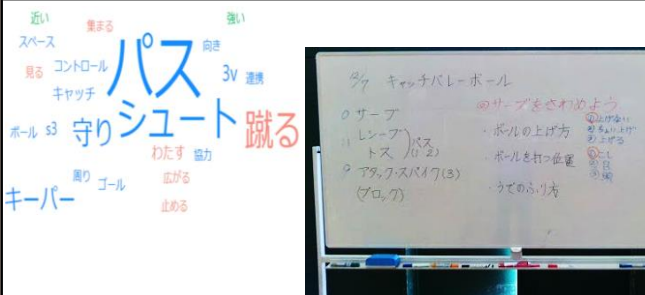 近い
強い
集まる
スペース
パス
向き
見る
コントロール
3v
連携
キャッチ
シュート
蹴る
ボール
s3
守り
わたす
協力
周り
ゴール
広がる
キーパー
止める
キャッチバレーボール
サーブ
レシーブ
トス
パス
(1・2)
アタック・スパイク(3)
(ブロック)
めサーブをきわめよう
・ボールの上げ方
・ボールを打つ位置
・うでのふり方
上げる